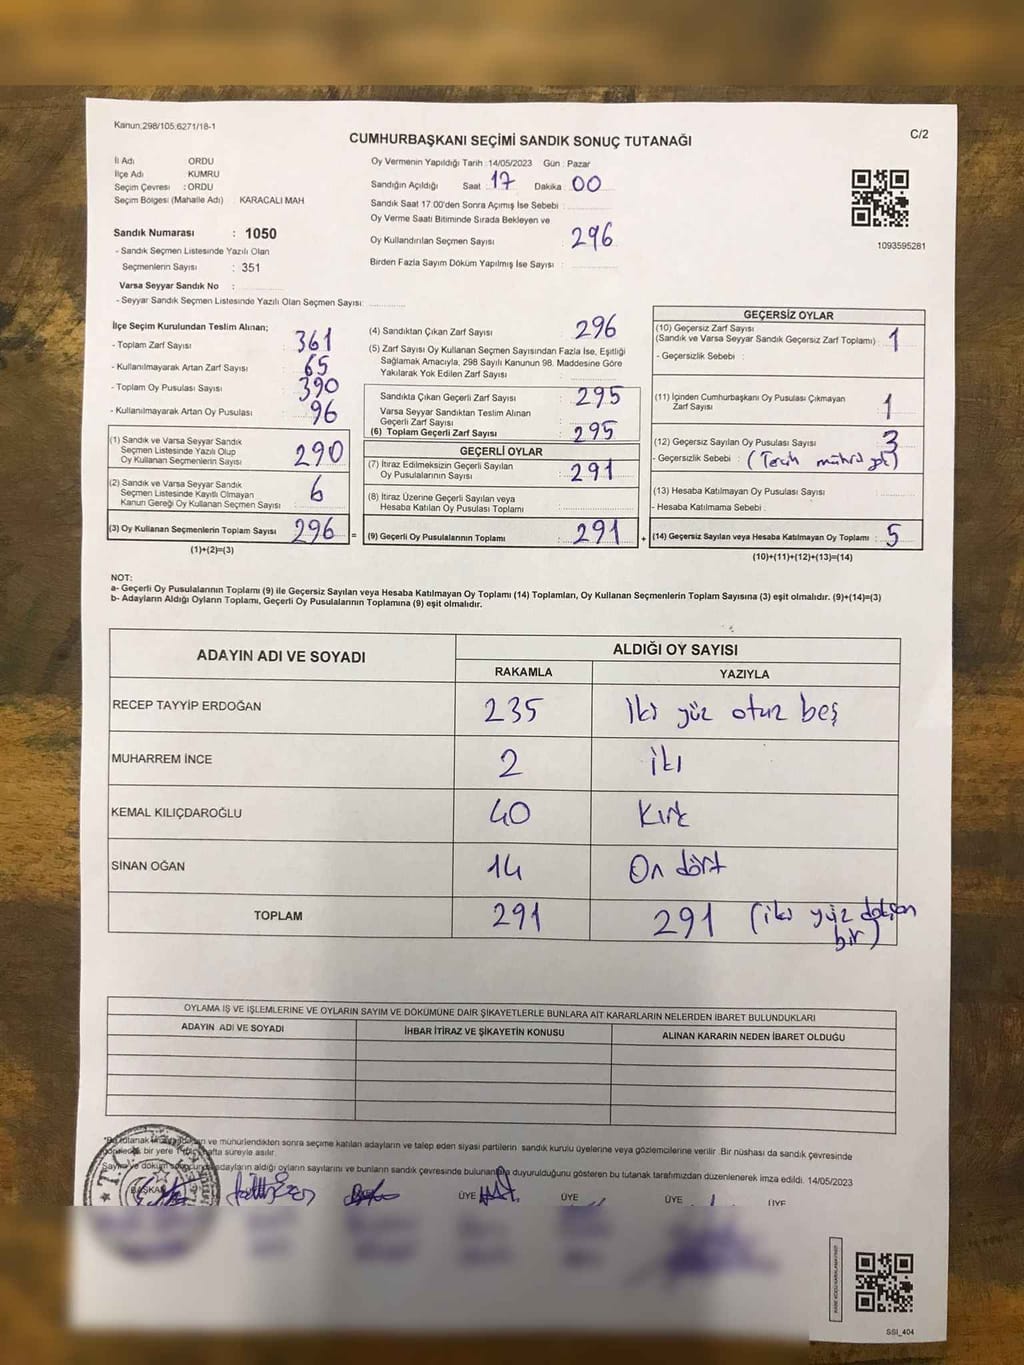 Kanun,298/105;6271/18-1
C/2
CUMHURBAŞKANI SEÇİMİ SANDIK SONUÇ TUTANAĞI
İl Adı ORDU
İlçe Adı KUMRU
Seçim Çevresi : ORDU
Seçim Bölgesi (Mahalle Adı) KARACALI MAH
Sandık Numarası : 1050
- Sandık Seçmen Listesinde Yazılı Olan
Seçmenlerin Sayısı : 351
Varsa Seyyar Sandık No :
- Seyyar Sandık Seçmen Listesinde Yazılı Olan Seçmen Sayısı:
Oy Vermenin Yapıldığı Tarih :14/05/2023 Gün : Pazar
Sandığın Açıldığı Saat : 17 Dakika : 00
Sandık Saat 17.00'den Sonra Açımış İse Sebebi :
Oy Verme Saati Bitiminde Sırada Bekleyen ve
Oy Kullandırılan Seçmen Sayısı : 296
Birden Fazla Sayım Döküm Yapılmış İse Sayısı :
1093595281
İlçe Seçim Kurulundan Teslim Alınan;
- Toplam Zarf Sayısı : 361
- Kullanılmayarak Artan Zarf Sayısı : 65
- Toplam Oy Pusulası Sayısı : 390
- Kullanılmayarak Artan Oy Pusulası : 96
(1) Sandık ve Varsa Seyyar Sandık
Seçmen Listesinde Yazılı Olup
Oy Kullanan Seçmenlerin Sayısı : 290
(2) Sandık ve Varsa Seyyar Sandık
Seçmen Listesinde Kayıtlı Olmayan
Kanun Gereği Oy Kullanan Seçmen Sayısı : 6
(3) Oy Kullanan Seçmenlerin Toplam Sayısı : 296 =
(1)+(2)=(3)
(4) Sandıktan Çıkan Zarf Sayısı : 296
(5) Zarf Sayısı Oy Kullanan Seçmen Sayısından Fazla İse, Eşitliği
Sağlamak Amacıyla, 298 Sayılı Kanunun 98. Maddesine Göre
Yakılarak Yok Edilen Zarf Sayısı :
Sandıkta Çıkan Geçerli Zarf Sayısı : 295
Varsa Seyyar Sandıktan Teslim Alınan
Geçerli Zarf Sayısı :
(6) Toplam Geçerli Zarf Sayısı : 295
GEÇERLİ OYLAR
(7) İtiraz Edilmeksizin Geçerli Sayılan
Oy Pusulalarının Sayısı : 291
(8) İtiraz Üzerine Geçerli Sayılan veya
Hesaba Katılan Oy Pusulaları Toplamı :
(9) Geçerli Oy Pusulalarının Toplamı : 291 +
GEÇERSİZ OYLAR
(10) Geçersiz Zarf Sayısı
(Sandık ve Varsa Seyyar Sandık Geçersiz Zarf Toplamı) : 1
- Geçersizlik Sebebi :
(11) İçinden Cumhurbaşkanı Oy Pusulası Çıkmayan
Zarf Sayısı : 1
(12) Geçersiz Sayılan Oy Pusulası Sayısı : 3
- Geçersizlik Sebebi : (Tercih mührü yok)
(13) Hesaba Katılmayan Oy Pusulası Sayısı :
- Hesaba Katılmama Sebebi :
(14) Geçersiz Sayılan veya Hesaba Katılmayan Oy Toplamı : 5
(10)+(11)+(12)+(13)=(14)
NOT:
a- Geçerli Oy Pusulalarının Toplamı (9) ile Geçersiz Sayılan veya Hesaba Katılmayan Oy Toplamı (14) Toplamları, Oy Kullanan Seçmenlerin Toplam Sayısına (3) eşit olmalıdır. (9)+(14)=(3)
b- Adayların Aldığı Oyların Toplamı, Geçerli Oy Pusulalarının Toplamına (9) eşit olmalıdır.
ADAYIN ADI VE SOYADI
ALDIĞI OY SAYISI
RAKAMLA YAZIYLA
RECEP TAYYİP ERDOĞAN 235 İki yüz otuz beş
MUHARREM İNCE 2 iki
KEMAL KILIÇDAROĞLU 40 Kırk
SİNAN OĞAN 14 On dört
TOPLAM 291 291 (iki yüz doksan
bir)
OYLAMA İŞ VE İŞLEMLERİNE VE OYLARIN SAYIM VE DÖKÜMÜNE DAİR ŞİKAYETLERLE BUNLARA AİT KARARLARIN NELERDEN İBARET BULUNDUKLARI
ADAYIN ADI VE SOYADI İHBAR İTİRAZ VE ŞİKAYETİN KONUSU ALINAN KARARIN NEDEN İBARET OLDUĞU
ve mühürlendikten sonra seçime katılan adayların ve talep eden siyasi partilerin sandık kurulu üyelerine veya gözlemcilerine verilir .Bir nüshası da sandık çevresinde
bir yere 1 hafta süreyle asılır.
adayların aldığı oyların sayılarını ve bunların sandık çevresinde bulunanlara duyurulduğunu gösteren bu tutanak tarafımızdan düzenlenerek imza edildi. 14/05/2023
T.C.
BAŞKAN ÜYE ÜYE ÜYE ÜYE
SSI_404